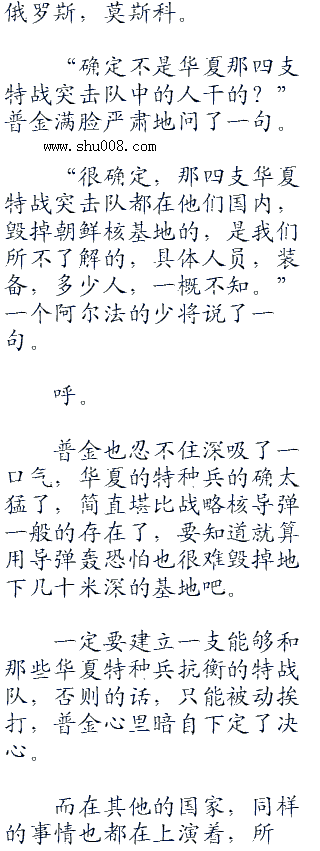 俄罗斯，莫斯科。
“确定不是华夏那四支
特战突击队中的人干的？”
普金满脸严肃地问了一句。
www.shu008.com
“很确定，那四支华夏
特战突击队都在他们国内，
毁掉朝鲜核基地的，是我们
所不了解的，具体人员，装
备，多少人，一概不知。”
一个阿尔法的少将说了一
句。
呼。
普金也忍不住深吸了一
口气，华夏的特种兵的确太
猛了，简直堪比战略核导弹
一般的存在了，要知道就算
用导弹轰恐怕也很难毁掉地
下几十米深的基地吧。
一定要建立一支能够和
那些华夏特种兵抗衡的特战
队，否则的话，只能被动挨
打，普金心里暗自下定了决
心。
而在其他的国家，同样
的事情也都在上演着，所